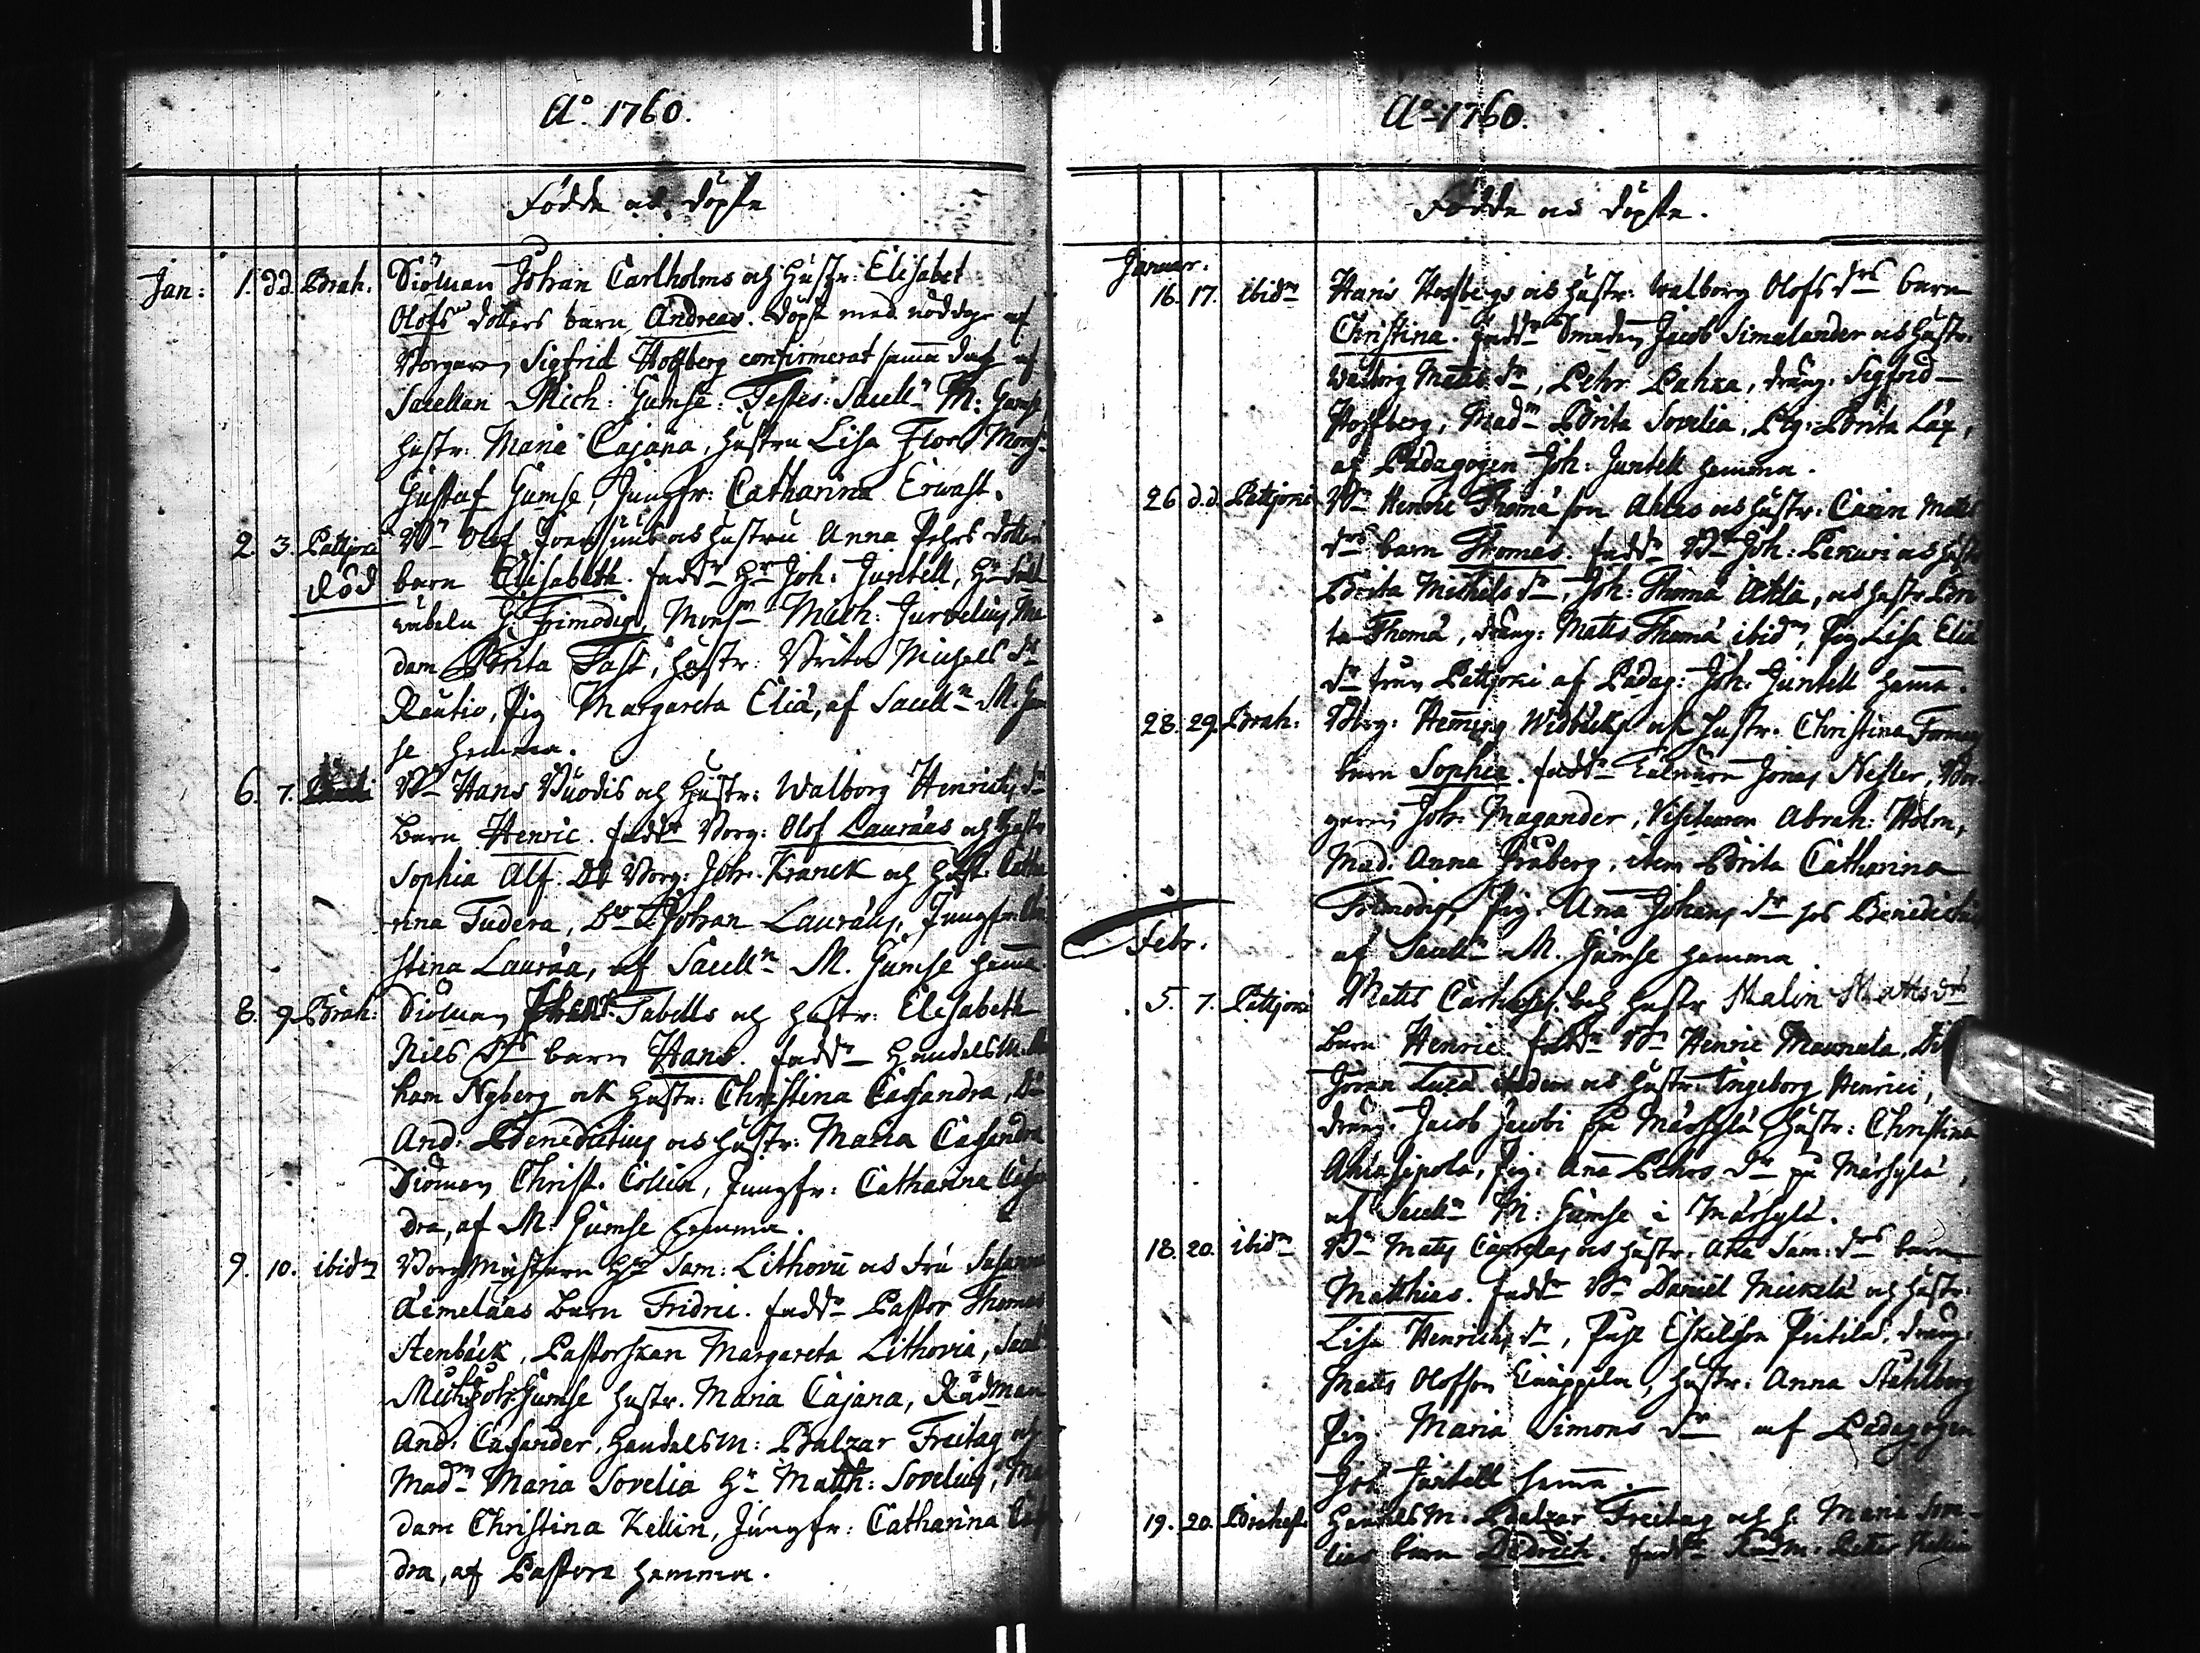 Ao. 1760.
Födde ock döpte
Jan: 1. dd. Brah. Siöman Johan Carlholms och Hustr: Elisabet
Olofs dotters barn Andreas. döpt med nöddop af
Borgaren Sigfrid Hoffberg confirmerat samma dag af
Sacellan Mich: Gumse. Testes: Sacelln M: Gumse
hustr: Maria Cajana, hustru Lisa Flor, Mons.
Gustaf Gumse, Jungfr: Catharina Erwast.
2. 3. Pattjoki Bn Olof ock hustru Anna Pehrs dotters
död barn Elisabeth. faddr Hr Joh: Juntell, Hr
G. Frimodig, Monsr Mich: Jurvelius, Ma
dam Brita Fast, hustr: Brita Michels dr
Rautio, Pig Margareta Eliä, af Sacelln M. Gum
se hemma.
6. 7. Bn Hans Buodis och Hustr: Walborg Henrichs dr
barn Henric. faddr Borg: Olof Lauræus och Hustr
Sophia Alf. Borg: Joh: Kranck och Hust. Catha
rina Tudera, Johan Lauræus, Jungfr.
stina Lauræa, af Sacelln M. Gumse hemma
8. 9. Brah: Siöman Tabells och hustr: Elisabeth
Nils drs barn Hans. faddr Handelsm.
ham Nyberg ock Hustr: Christina Casandra,
And: Benedictius ock hustr: Maria Casandra
Siöman Christ. Collin, Jungfr: Catharina Casan
dra, af M: Gumse hemma.
9. 10. ibidm Borgmästaren Hr Sam: Lithovii ock fru Susanna
Aimelæas barn Fridric. faddr Pastor Thomas
Stenbäck, Pastorskan Margareta Lithovia, Sacel
Mich: Gumse hustr. Maria Cajana, Rådman
And: Casander, Handelsm: Balzar Freitag och
Madm Maria Sovelia Hr Matth: Sovelius, Ma
dam Christina Kellin, Jungfr: Catharina Casan
dra, af Pastore hemma.
Ao 1760.
Födde ock döpte.
Januar.
16. 17. ibidm Hans Hoffbergs ock Hustr: Walborg Olofs drs barn
Christina. faddr Smeden Jacob Simelander ock Hustr.
Walborg Mats dr, Pehr Pahka, dräng. Sigfrid
Hoffberg, Madm Brita Sovelia, Pig: Brita Lax,
af Pædagogen Joh: Juntell hemma.
26 d.d. Pattjoki Bn Henric Thomä son Ahlas ock Hustr. Carin Mats
drs barn Thomas. faddr Bn Joh: Pekuri ock Hustr
Brita Michels dr, Joh: Thomä Ahla, ock hustr Bri
ta Thomä, dräng: Mats Thomä ibidm, Pig Lisa Eliä
dr från Pattjoki af Pædag: Joh: Juntell hemma.
28. 29. Brah: Borg: Henrics Widbäcks ock hustr. Christina
barn Sophia. faddr Jonas Nester, Bor
garen Joh: Magander, Visiteuren Abrah: Holm,
Mad: Anna Fruberg, item Brita Catharina
Frimodig, Pig. Anna Johans dr hos Benedictius
Febr. af Sacelln M. Gumse hemma.
5. 7. Pattjoki Mats och hustr Malin Mattsdrs
barn Henric. faddr Bn Henric Maunula,
Jöran Luca ock Hustr. Ingeborg Henrici,
dräng. Jacob Jacobi på Märsylä, Hustr: Christina
Ahlasipola, Pig: Anna Pehrs dr på Märsylä,
af Sacelln M: Gumse i Märsylä.
18. 20. ibidm Bn Mats ock hustr. Sam: drs barn
Matthias. faddr Bn Daniel Mickelä och hustr:
Lisa Henrichs dr, Eskilson Pietilä, dräng:
Mats Olofson hustr: Anna Stahlberg
Pig Maria Simons dr af Pædagogen
Joh Juntell hemma.
19. 20. Brahest. Handelsm: Balzar Freitag och h. Maria Sov-
lias barn Didrich. faddr Rådm: Peter Kellin